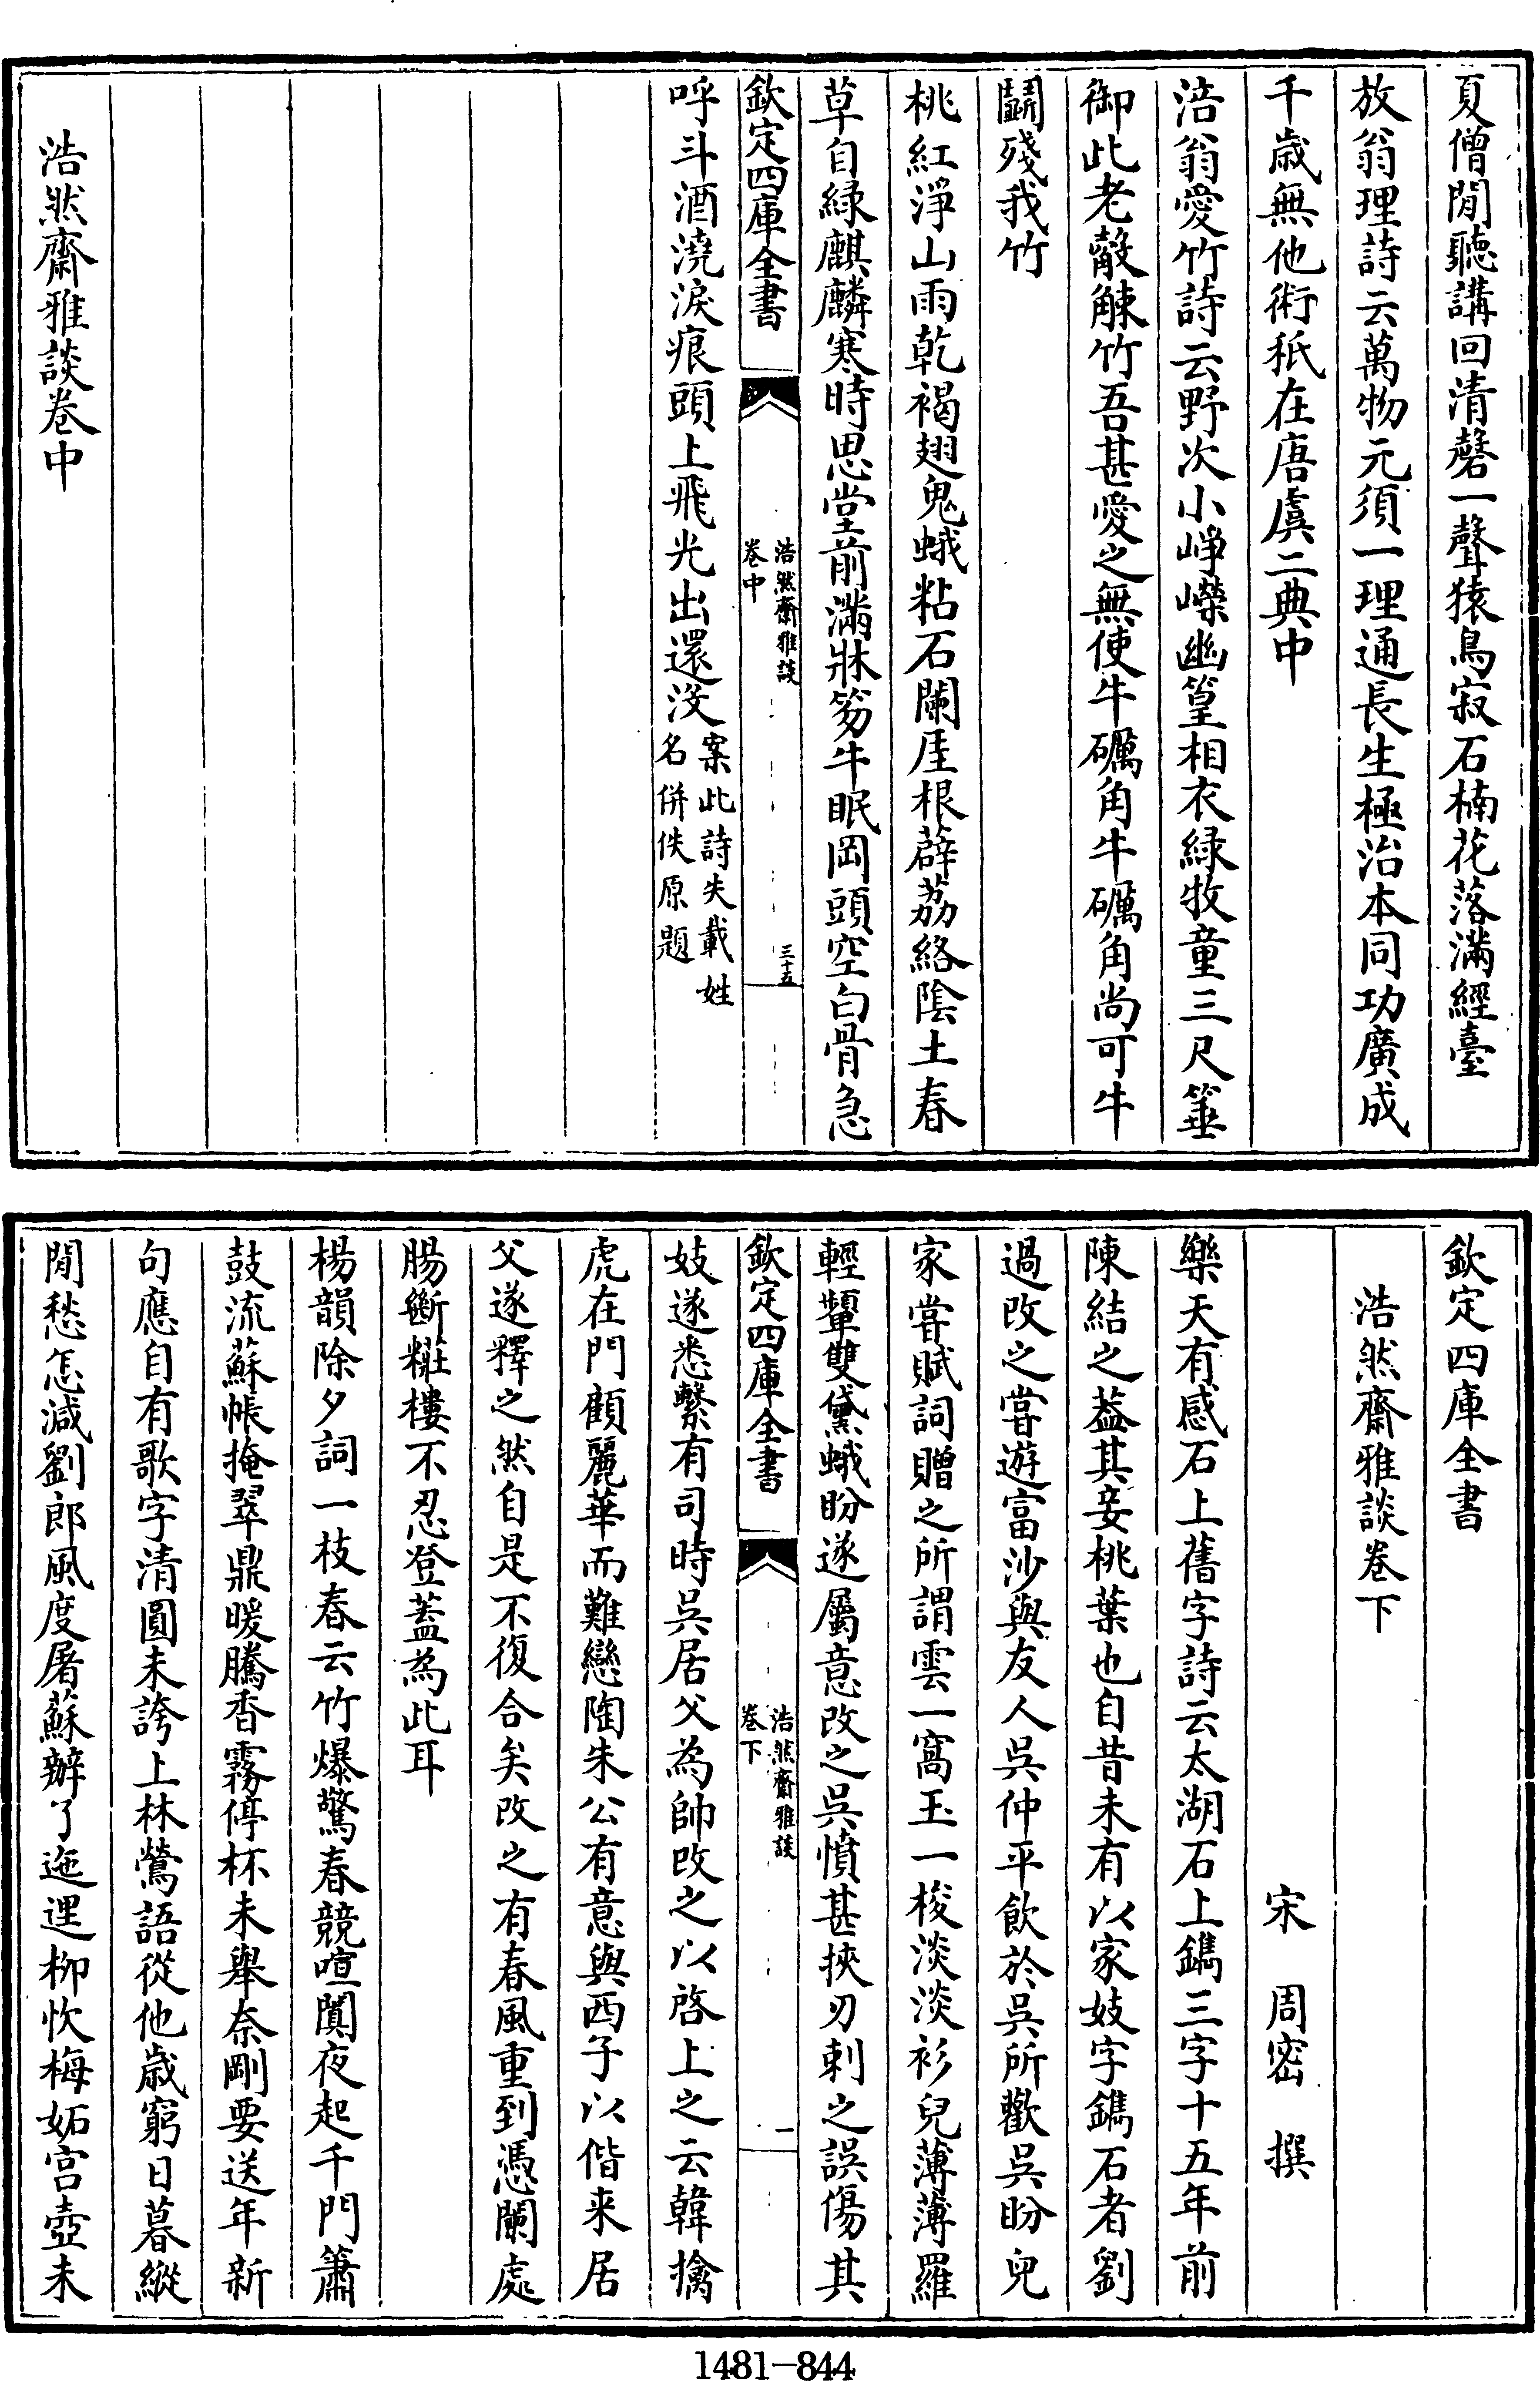 夏僧閒聽講回清磬一聲猿鳥寂石楠花落滿經臺
放翁理詩云萬物元須一理通長生極治本同功廣成
千歳無他術秖在唐虞二典中
涪翁愛竹詩云野次小崢嶸幽篁相衣緑牧童三尺箠
御此老觳觫竹吾甚愛之無使牛礪角牛礪角尚可牛
鬭殘我竹
桃紅淨山雨乾褐翅鬼蛾粘石闌厓根薜荔絡陰土春
草自緑麒麟寒時思堂前滿牀笏牛眠岡頭空白骨急
欽定四庫全書
浩然齋雅談
卷中
三十五
呼斗酒澆淚痕頭上飛光出還沒案此詩失載姓
名併佚原題
浩然齋雅談卷中
欽定四庫全書
浩然齋雅談卷下
宋 周密 撰
樂天有感石上舊字詩云太湖石上鐫三字十五年前
陳結之葢其妾桃葉也自昔未有以家妓字鐫石者劉
過改之嘗遊富沙與友人吳仲平飲於吳所歡吳盼兒
家嘗賦詞贈之所謂雲一窩玉一梭淡淡衫兒薄薄羅
輕顰雙黛蛾盼遂屬意改之吳憤甚挾刃刺之誤傷其
欽定四庫全書
浩然齋雅談
卷下
一
妓遂悉繫有司時吳居父為帥改之以啓上之云韓擒
虎在門顧麗華而難戀陶朱公有意與西子以偕来居
父遂釋之然自是不復合矣改之有春風重到憑闌處
腸斷糚樓不忍登蓋為此耳
楊韻除夕詞一枝春云竹爆驚春競喧闐夜起千門簫
鼓流蘇帳掩翠鼎暖騰香霧停杯未舉奈剛要送年新
句應自有歌字清圓未誇上林鶯語從他歳窮日暮縱
閒愁怎減劉郎風度屠蘇辦了迤逦柳忺梅妬宮壺未
1481-844